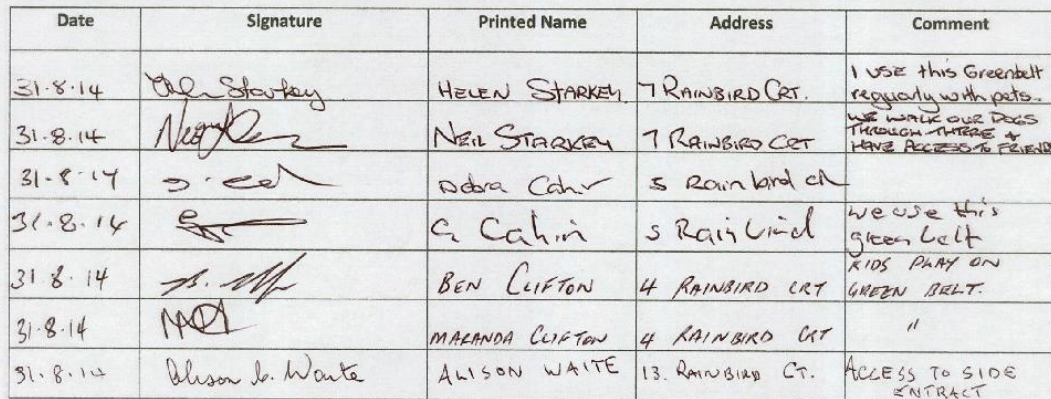 Date Signature Printed Name Address Comment
31.8.14 Starkey HELEN STARKEY. 7 RAINBIRD CRT. I USE this Greenbelt
reguarly with pets.
31.8.14 NEIL STARKEY 7 RAINBIRD CRT WE WALK OUR DOGS
THROUGH THERE &
HAVE ACCESS TO FRIEND
31-8-14 Debra 5 Rainbird
31.8.14 G 5 Rainbird we use this
green belt
31.8.14 BEN CLIFTON 4 RAINBIRD CRT KIDS PLAY ON
GREEN BELT.
31.8.14 CLIFTON 4 RAINBIRD CRT "
31.8.14 Alison Waite ALISON WAITE 13. RAINBIRD CT. ACCESS TO SIDE
ENTRACT